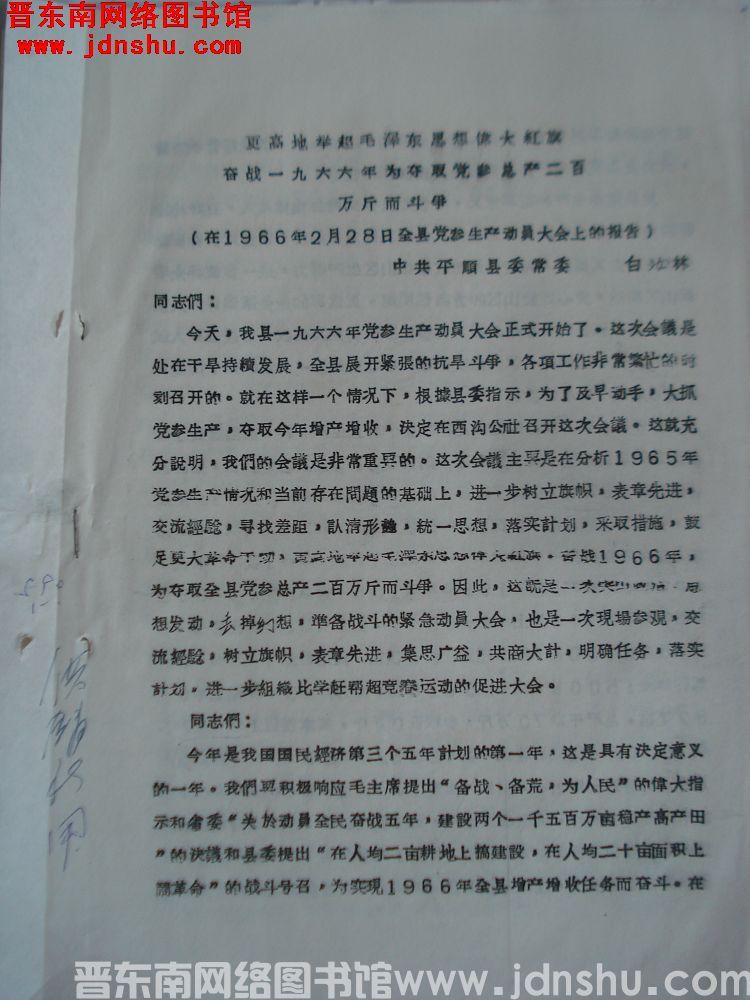 晋东南网络图书馆
www.jdnshu.com
更高地举起毛泽东思想偉大紅旗
奋战一九六六年为夺取党参总产二百
万斤而斗爭
（在1966年2月28日全县党参生产动員大会上的报告）
中共平順县委常委 白 林
同志們：
今天，我县一九六六年党参生产动員大会正式开始了。这次会議是
处在干旱持續发展，全县展开紧張的抗旱斗爭，各項工作非常繁忙的时
刻召开的。就在这样一个情况下，根據县委指示，为了及早动手，大抓
党参生产，夺取今年增产增收，决定在西沟公社召开这次会議。这就充
分説明，我們的会議是非常重要的。这次会議主要是在分析1965年
党参生产情况和当前存在問題的基础上，进一步树立旗帜，表章先进，
交流經驗，寻找差距，認清形勢，統一思想，落实計划，采取措施，鼓
足更大革命干劲，更高地举起毛泽东思想偉大紅旗。奋战1966年，
为夺取全县党参总产二百万斤而斗爭。因此，这既是一次突出政治、思
想发动，丢掉幻想，準备战斗的紧急动員大会，也是一次現場参观，交
流經驗，树立旗帜，表章先进，集思广益，共商大計，明确任务，落实
計划，进一步組織比学赶帮超竞賽运动的促进大会。
同志們：
今年是我国国民經济第三个五年計划的第一年，这是具有决定意义
的一年。我們要积极响应毛主席提出“备战、备荒，为人民”的偉大指
示和省委“关於动員全民奋战五年，建設两个一千五百万亩穏产高产田
”的决議和县委提出“在人均二亩耕地上搞建設，在人均二十亩面积上
闹革命”的战斗号召，为实現1966年全县增产增收任务而奋斗。在
晋东南网络图书馆www.jdnshu.com